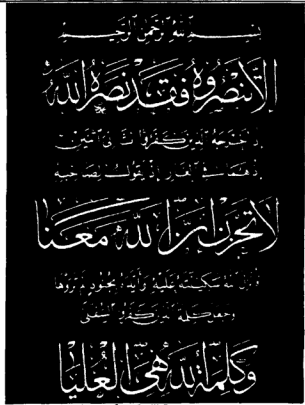 بسم الله الرحمن الرحيم
إلا تنصروه فقد نصره الله
إذ أخرجه الذين كفروا ثاني اثنين
إذ هما في الغار إذ يقول لصاحبه
لا تحزن إن الله معنا
فأنزل الله سكينته عليه وأيده بجنود لم تروها
وجعل كلمة الذين كفروا السفلى
وكلمة الله هي العليا